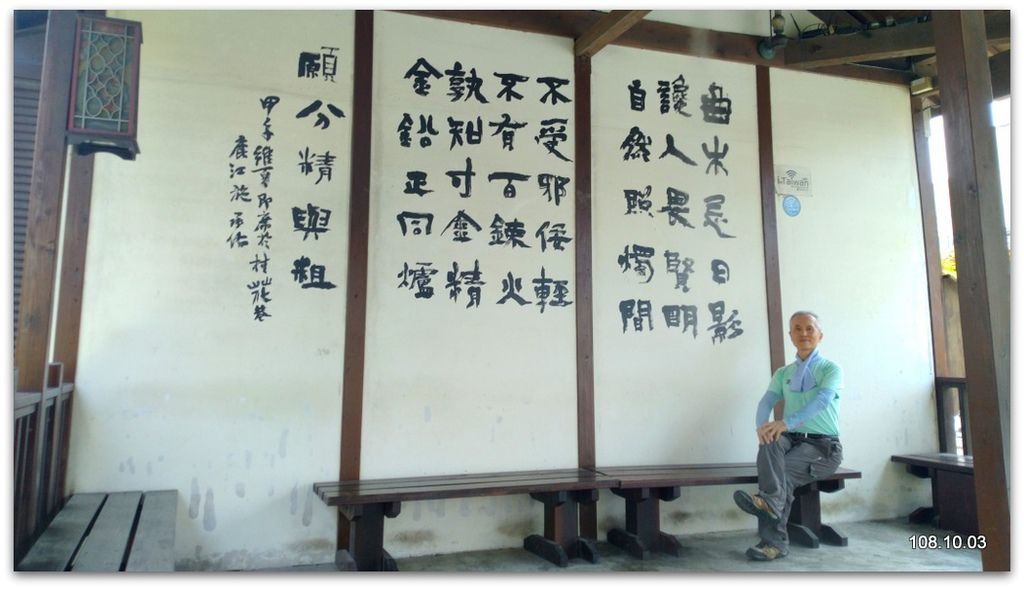 曲木忌日影
讒人畏賢明
自然照燭間
不受邪佞輕
不有百鍊火
孰知寸金精
金鉛正同爐
願分精與粗
甲午維夏即席於村
鹿江施
iTaiwan
108.10.03